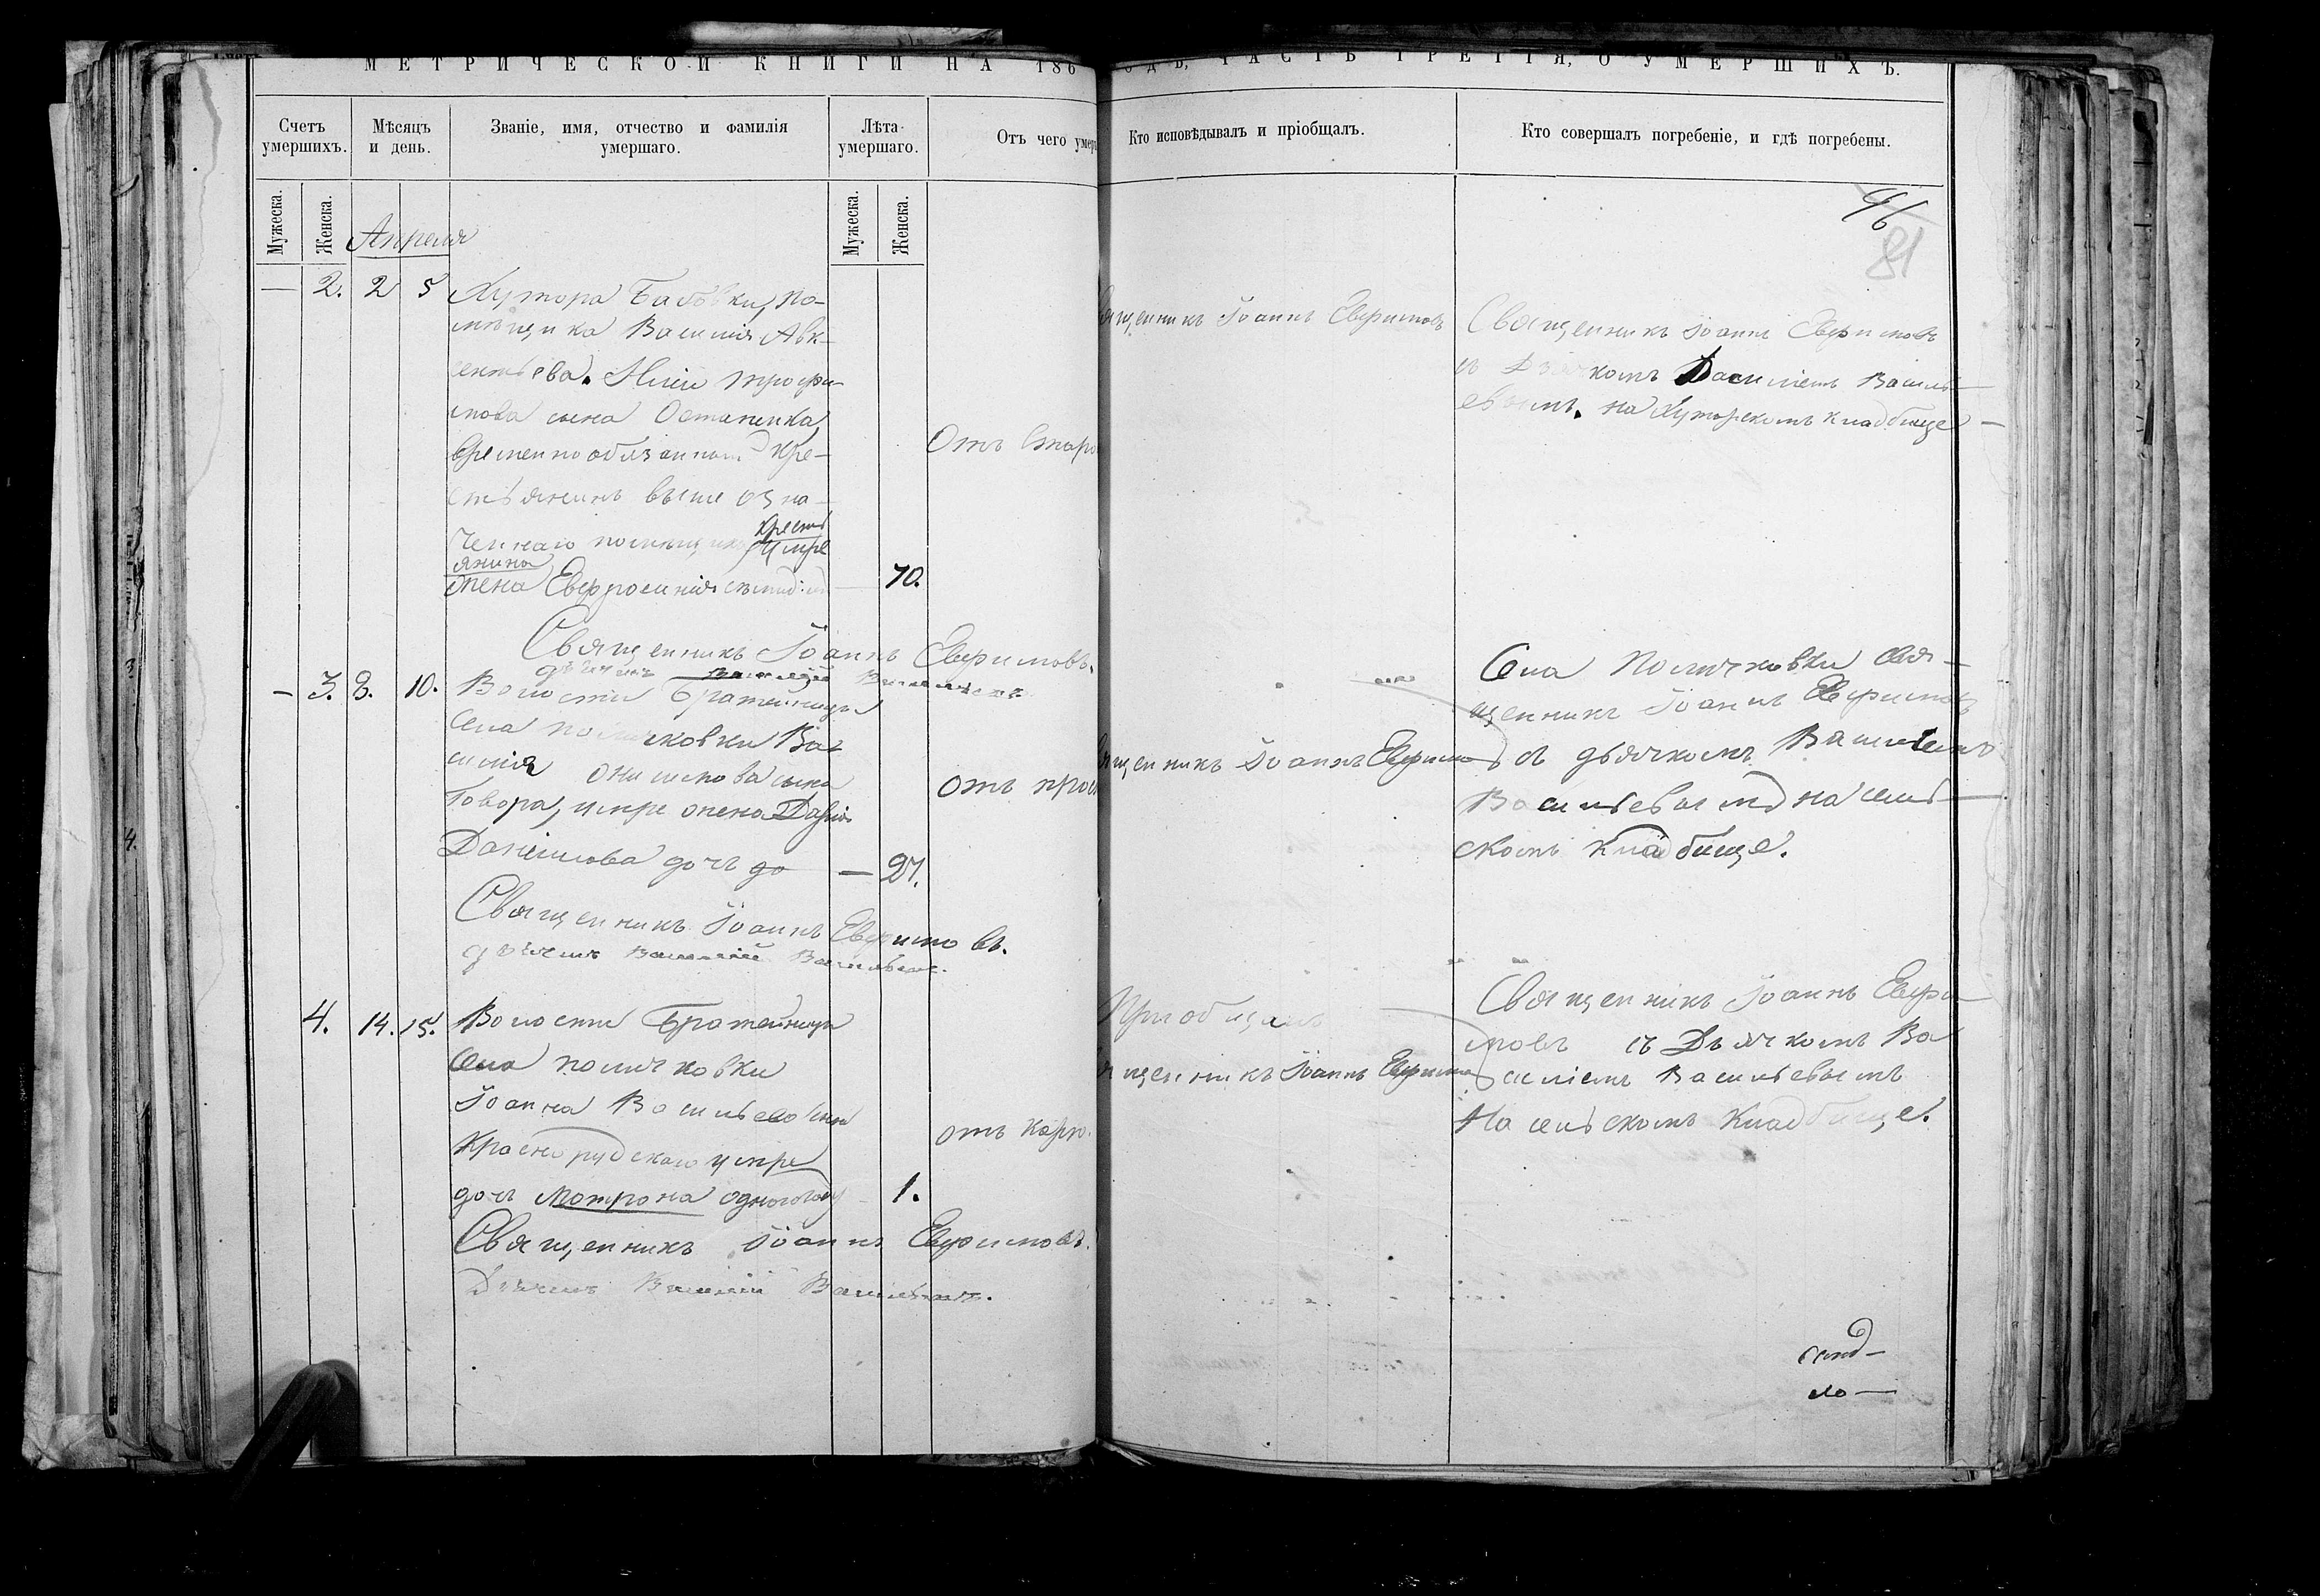 МЕТРИЧЕСКОЙ КНИГИ НА 186
ОДЪ, ЧАСТЬ ТРЕТІЯ, О УМЕРШИХЪ.
Счетъ умершихъ.
Мѣсяцъ и день.
Званіе, имя, отчество и фамилія умершаго.
Лѣта умершаго.
Отъ чего умер
Кто исповѣдывалъ и пріобщалъ.
Кто совершалъ погребеніе, и гдѣ погребены.
Мужеска.
Женска.
Мужеска.
Женска.
46
81
Апреля
— 2. 2 5 Хутора Бабовки, по-
мѣщика Василія Авк-
ентьева. Трофи-
мова сына Остапенка,
временнообязанном Кре-
стьянинъ выше озна-
ченнаго помѣщика кресть
янина умре
жена Евфросинія — 70.
Отъ Старо
ященникъ Іоаннъ Евфимовъ
Священникъ Іоаннъ Евфимовъ
съ Дьячкомъ Василіемъ Василь-
евымъ. на Хуторскомъ кладбище —
Священникъ Іоаннъ Евфимовъ.
дьячекъ Василій Васильевъ
— 3. 8. 10. Волости Братешницы
Села Поличковки Ва
силія Онисимова сына
Говора, умре жена Дарія
Даніилова дочь до — 27.
отъ прос
ященникъ Іоаннъ Евфимо
Села Поличковки Свя-
щенникъ Іоаннъ Евфимовъ
съ дьячкомъ Василіемъ
Васильевымъ на сель-
скомъ кладбище.
Священникъ Іоаннъ Евфимовъ.
дьячекъ Василій Васильевъ.
4. 14. 15. Волости Братешницы
Села Поличковки
Іоанна Васильева сына
Краснорудскаго умре
дочь Мотрона одного году 1.
отъ корю.
Пріобщалъ
ященникъ Іоаннъ Евфимо
Священникъ Іоаннъ Евфи-
мовъ съ Дьячкомъ Ва
силіемъ Васильевымъ
На сельскомъ кладбище.
Священникъ Іоаннъ Евфимовъ.
Дьячекъ Василій Васильевъ.
ло —